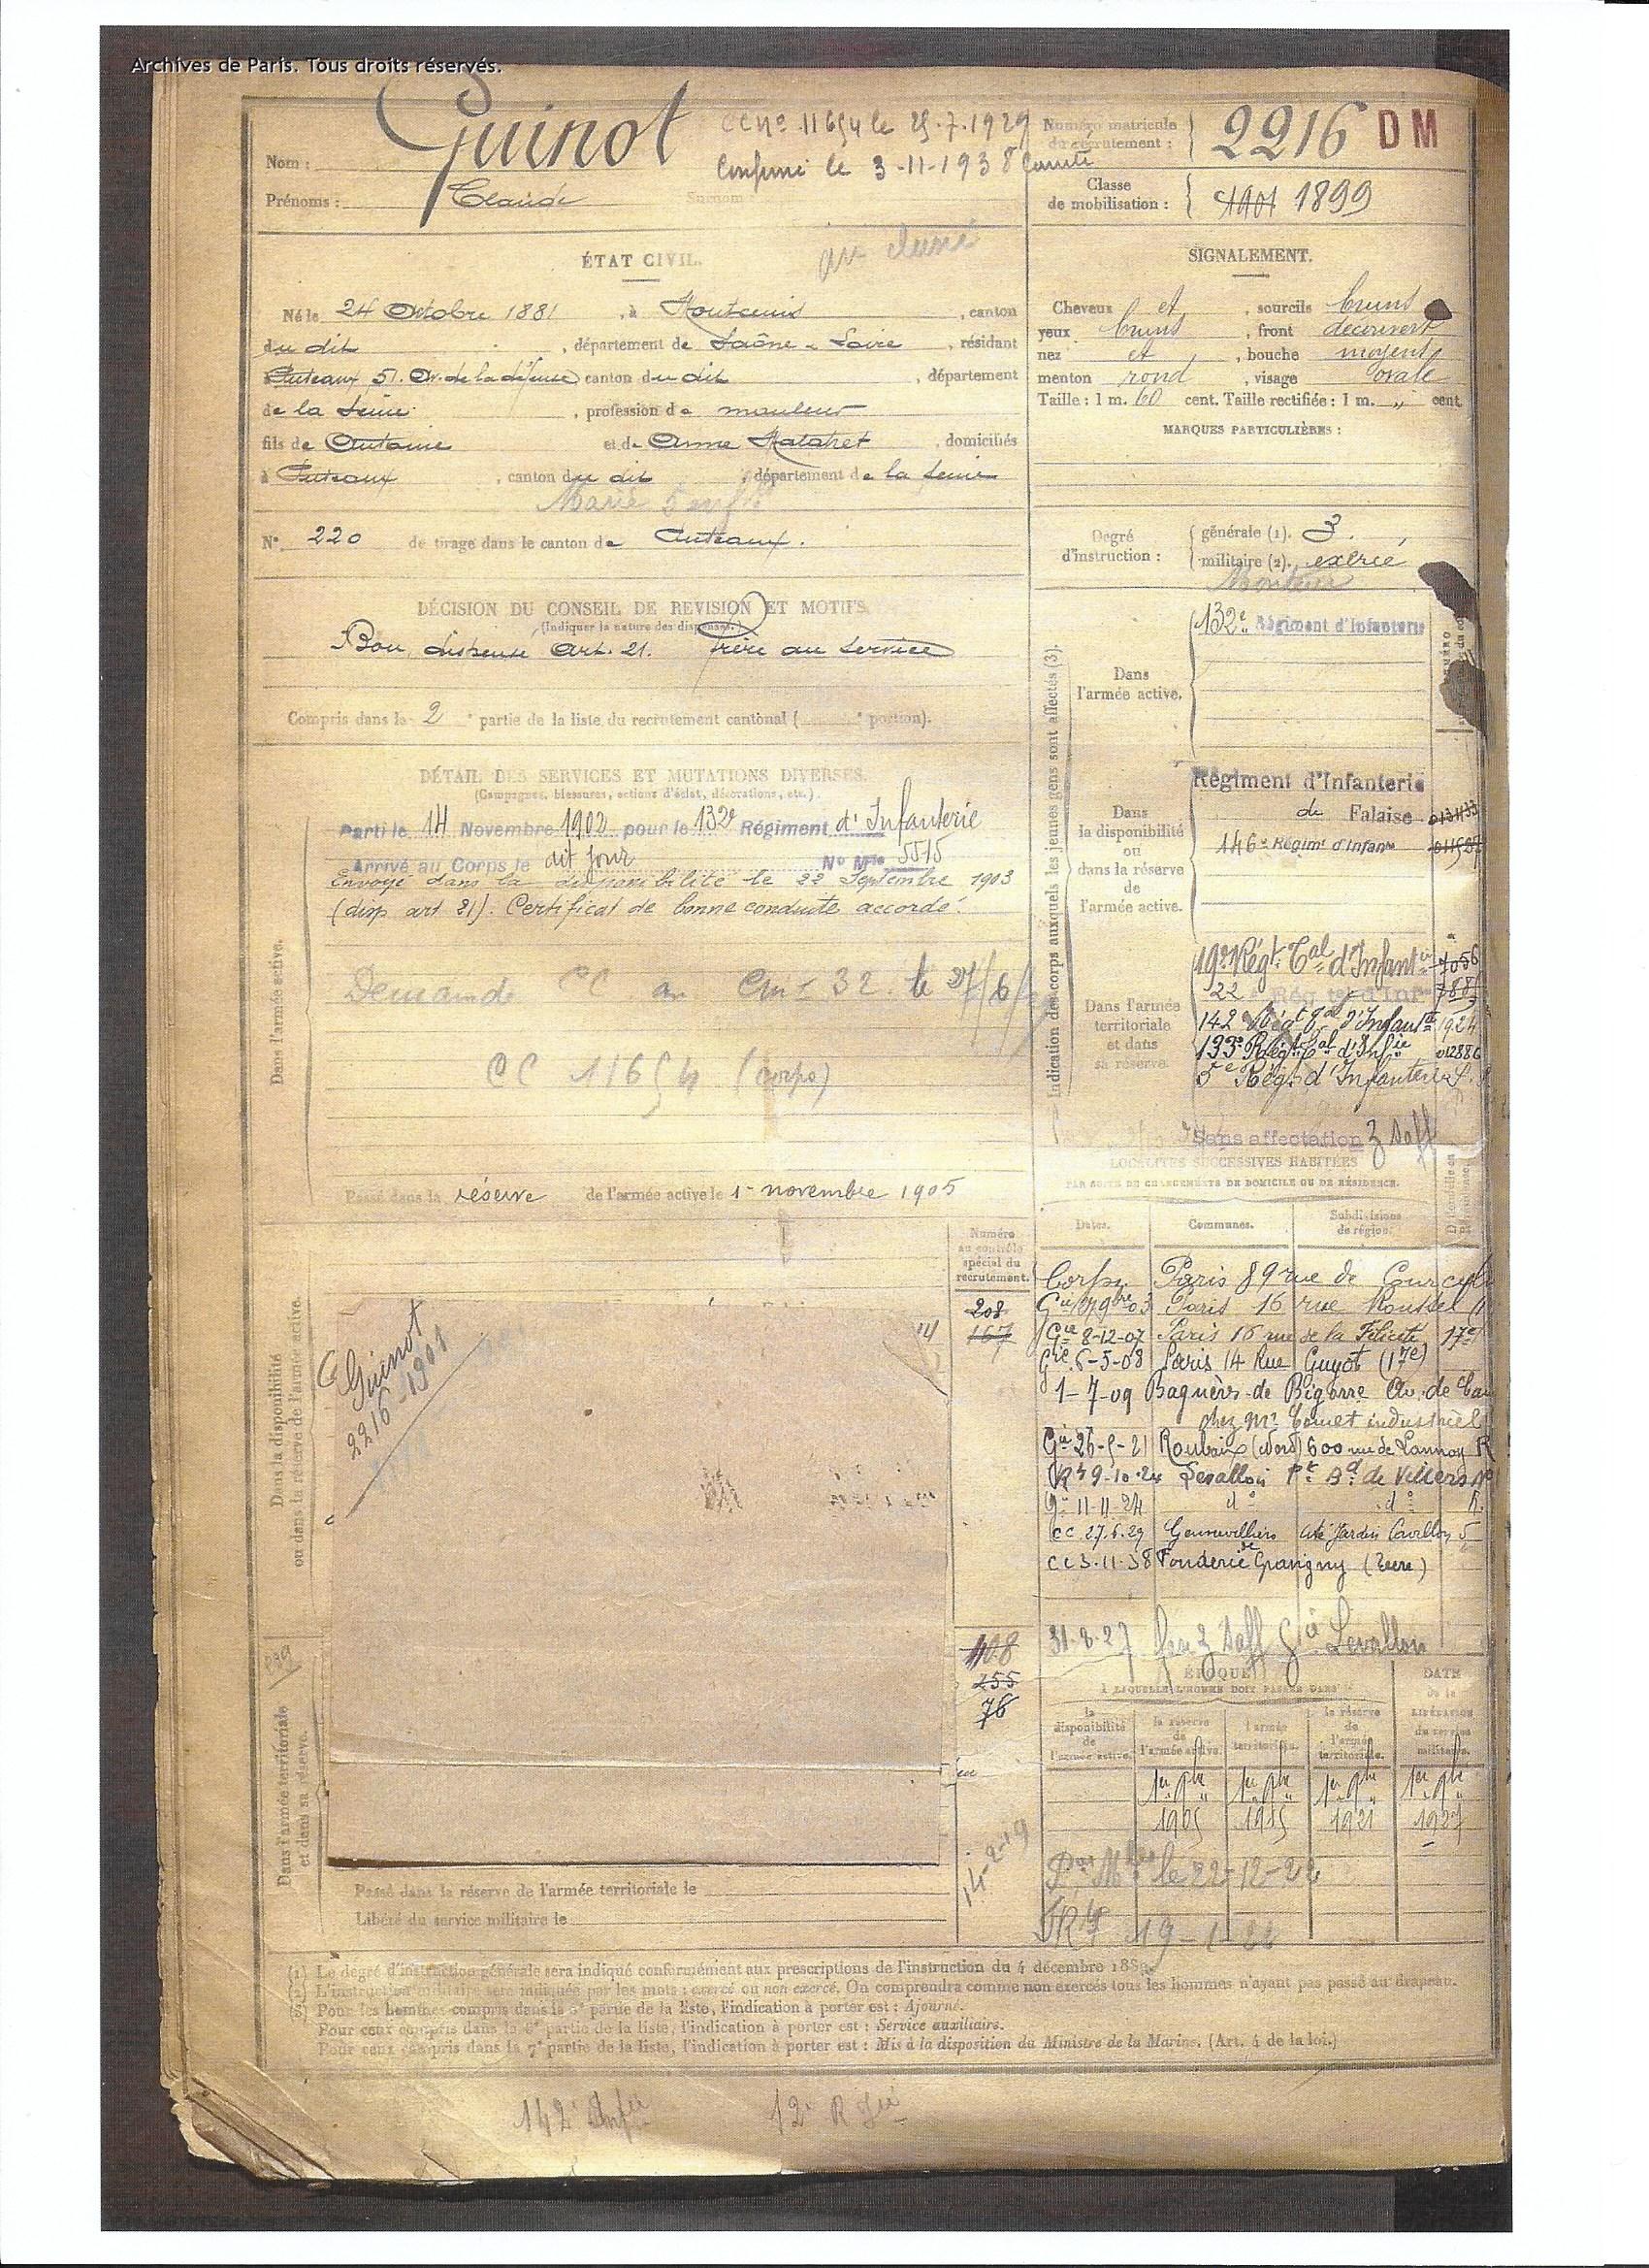 Archives de Paris. Tous droits réservés.
Nom : Guinot
CC No 11654 le 25.7.1929
le 3-11-1938
Numéro matricule du recrutement : 2216 DM
Prénoms : Claude Surnom
Classe de mobilisation : 1901 1899
ÉTAT CIVIL.
Né le 24 Octobre 1881, à Montcenis, canton
du dit, département de Saône & Loire, résidant
à Puteaux 51. Av. de la défense canton du dit, département
de la Seine, profession de mouleur
fils de Antoine et de Anne, domiciliés
à Puteaux, canton du dit, département de la Seine
Marié 5 enf
No. 220 de tirage dans le canton de Puteaux.
SIGNALEMENT.
Cheveux et, sourcils bruns
yeux bruns, front découvert
nez et, bouche moyens
menton rond, visage ovale
Taille : 1 m. 60 cent. Taille rectifiée : 1 m. „ cent.
MARQUES PARTICULIÈRES :
Degré d'instruction : générale (1). 3.
militaire (2). exercé
DÉCISION DU CONSEIL DE REVISION ET MOTIFS.
(Indiquer la nature des dispenses.)
Bon, dispensé Art. 21. frère au service
Compris dans la 2e partie de la liste du recrutement cantonal ( e portion).
DÉTAIL DES SERVICES ET MUTATIONS DIVERSES.
(Campagnes, blessures, actions d'éclat, décorations, etc.)
Dans l'armée active.
Parti le 14 Novembre 1902 pour le 132e Régiment d'Infanterie
Arrivé au Corps le dit jour No Mle 5515
Envoyé dans la disponibilité le 22 Septembre 1903
(disp art 21). Certificat de bonne conduite accordé.
Demande CC le 27/6/
CC 11654 (corps)
Passé dans la réserve de l'armée active le 1er novembre 1905
Indication des corps auxquels les jeunes gens sont affectés (3).
Dans l'armée active.
132e Régiment d'Infanterie
Dans la disponibilité ou dans la réserve de l'armée active.
Régiment d'Infanterie
de Falaise
146e Régimt d'Infanie
Dans l'armée territoriale et dans sa réserve.
19e Régt Tal d'Infantie 7056
22e Rég tal d'Infie
142e Régt Tal d'Infantie 1924
133e Régt Tal d'Infie 012886
5e Régt d'Infanterie
Sans affectation
LOCALITÉS SUCCESSIVES HABITÉES
PAR SUITE DE CHANGEMENTS DE DOMICILE OU DE RÉSIDENCE.
Dates. Communes. Subdivisions de région.
Corps. Paris 89 rue de Courcel
Paris 16 rue Roussel
Gie 8-12-07 Paris 16 rue de la Félicité 17e
Gie 6-5-08 Paris 14 Rue Guyot (17e)
1-7-09 Bagnères-de-Bigorre Av. de
chez Mr industriel
Gie 26-5-21 Roubaix (Nord) 600 rue de Lannoy R
9-10-24 Levallois Pt Bd de Villers
Gie 11-11-24 do do
CC 27.6.29 Gennevilliers Cité Jardin 5
CC 3.11.38 Fonderie de Gravigny (Eure)
31.8.27 Gie Levallois
Numéro au contrôle spécial du recrutement.
208
167
108
255
76
Dans la disponibilité ou dans la réserve de l'armée active.
C Guinot
2216-1901
ÉPOQUE
À LAQUELLE L'HOMME DOIT PASSER DANS
la disponibilité de l'armée active. la réserve de l'armée active. l'armée territoriale. la réserve de l'armée territoriale.
DATE de la LIBÉRATION du service militaire.
1er 9bre 1905 1er 9bre 1915 1er 9bre 1921 1er 9bre 1927
le 22-12-22
19-1-22
14-2-19
Dans l'armée territoriale et dans sa réserve.
Passé dans la réserve de l'armée territoriale le
Libéré du service militaire le
(1) Le degré d'instruction générale sera indiqué conformément aux prescriptions de l'instruction du 4 décembre 1889.
(2) L'instruction militaire sera indiquée par les mots : exercé ou non exercé. On comprendra comme non exercés tous les hommes n'ayant pas passé au drapeau.
(3) Pour les hommes compris dans la 5e partie de la liste, l'indication à porter est : Ajourné.
Pour ceux compris dans la 6e partie de la liste, l'indication à porter est : Service auxiliaire.
Pour ceux compris dans la 7e partie de la liste, l'indication à porter est : Mis à la disposition du Ministre de la Marine. (Art. 4 de la loi.)
142e Infie 12e R